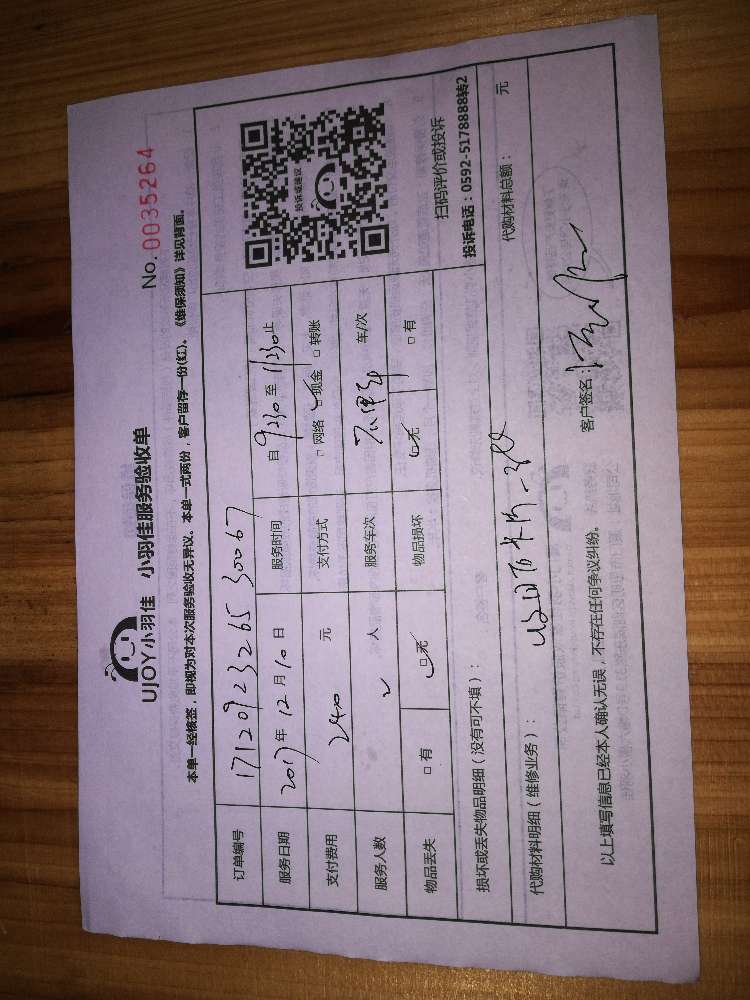 UJOY小羽佳 小羽佳服务验收单
No.0035264
本单一经核签，即视为对本次服务验收无异议。本单一式两份，客户留存一份(红)。《维保须知》详见背面。
订单编号 17120923265 30067
服务日期 2017年12月10日 服务时间 自9:30至11:30止
支付费用 240 元 支付方式 □网络 □现金 □转账
服务人数 2 人 服务车次 车/次
物品丢失 □有 □无 物品损坏 □无 □有
投诉或建议
扫码评价或投诉
投诉电话：0592-5178888转2
损坏或丢失物品明细（没有可不填）：
代购材料明细（维修业务）： 代购材料总额： 元
以上填写信息已经本人确认无误，不存在任何争议纠纷。 客户签名：